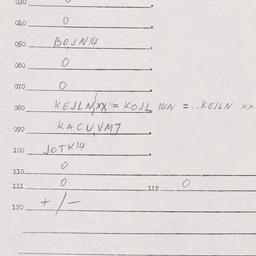 030 0
040 0
050 BOJN14
060 0
070 0
080 KEJLN,XX = KOJL 14N = .. KEJLN XX
090 KACU,VM7
100 JOTK14
110 0
111 0 112 0
120 + / -